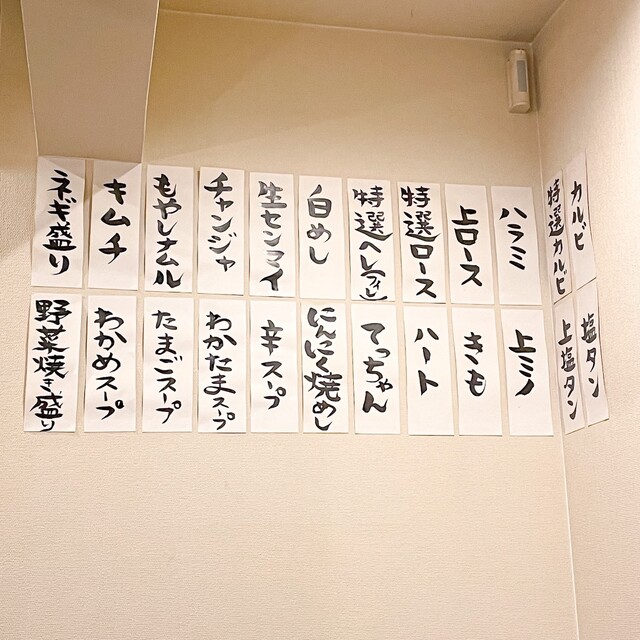 カルビ
特選カルビ
ハラミ
上ロース
特選ロース
特選ヘレ(フィレ)
白めし
生センマイ
チャンジャ
もやしナムル
キムチ
ネギ盛り
塩タン
上塩タン
上ミノ
きも
ハート
てっちゃん
にんにく焼めし
辛スープ
わかたまスープ
たまごスープ
わかめスープ
野菜焼き盛り